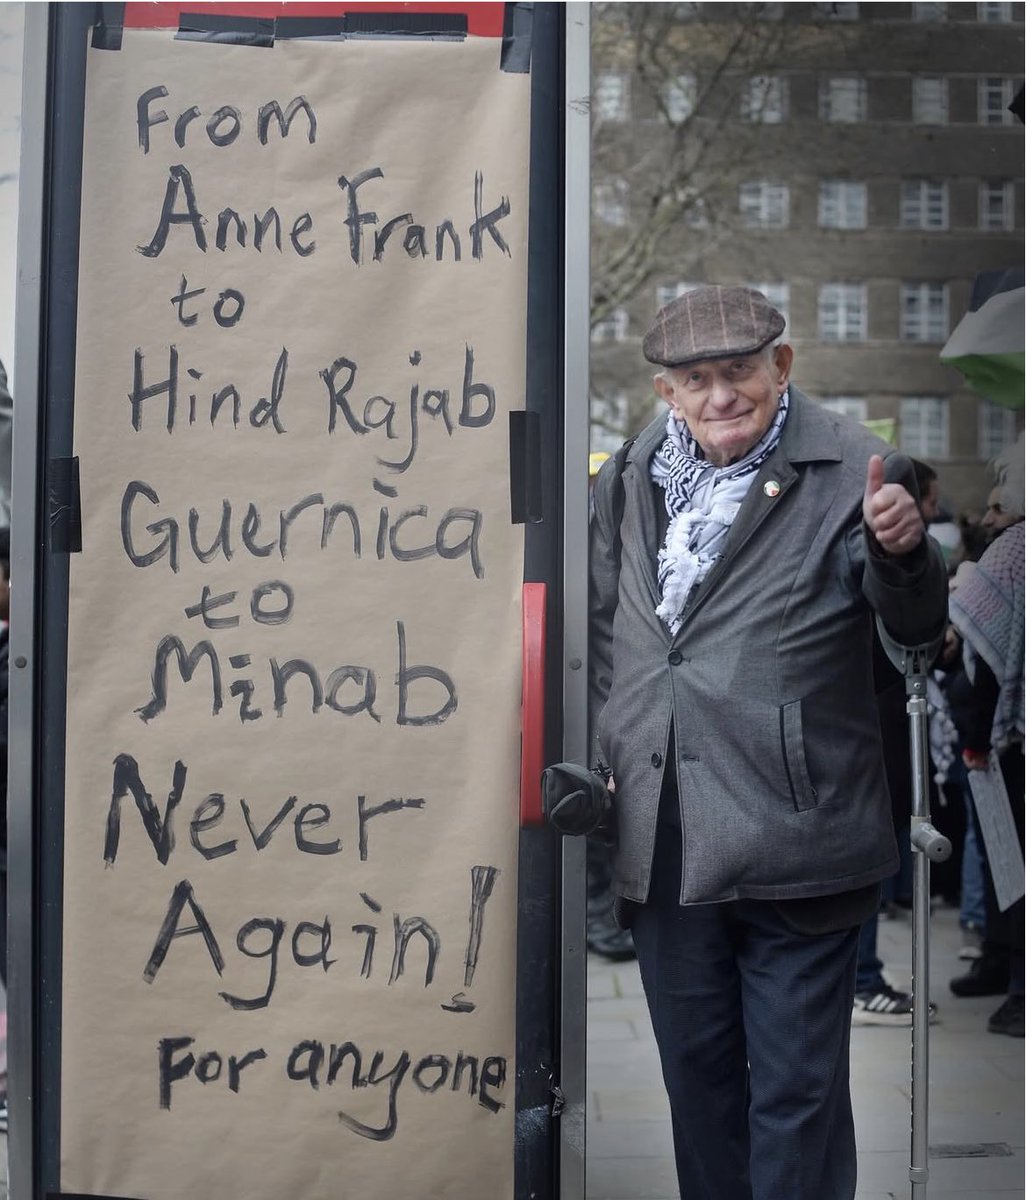 From
Anne Frank
to
Hind Rajab
Guernica
to
Minab
Never
Again!
For anyone